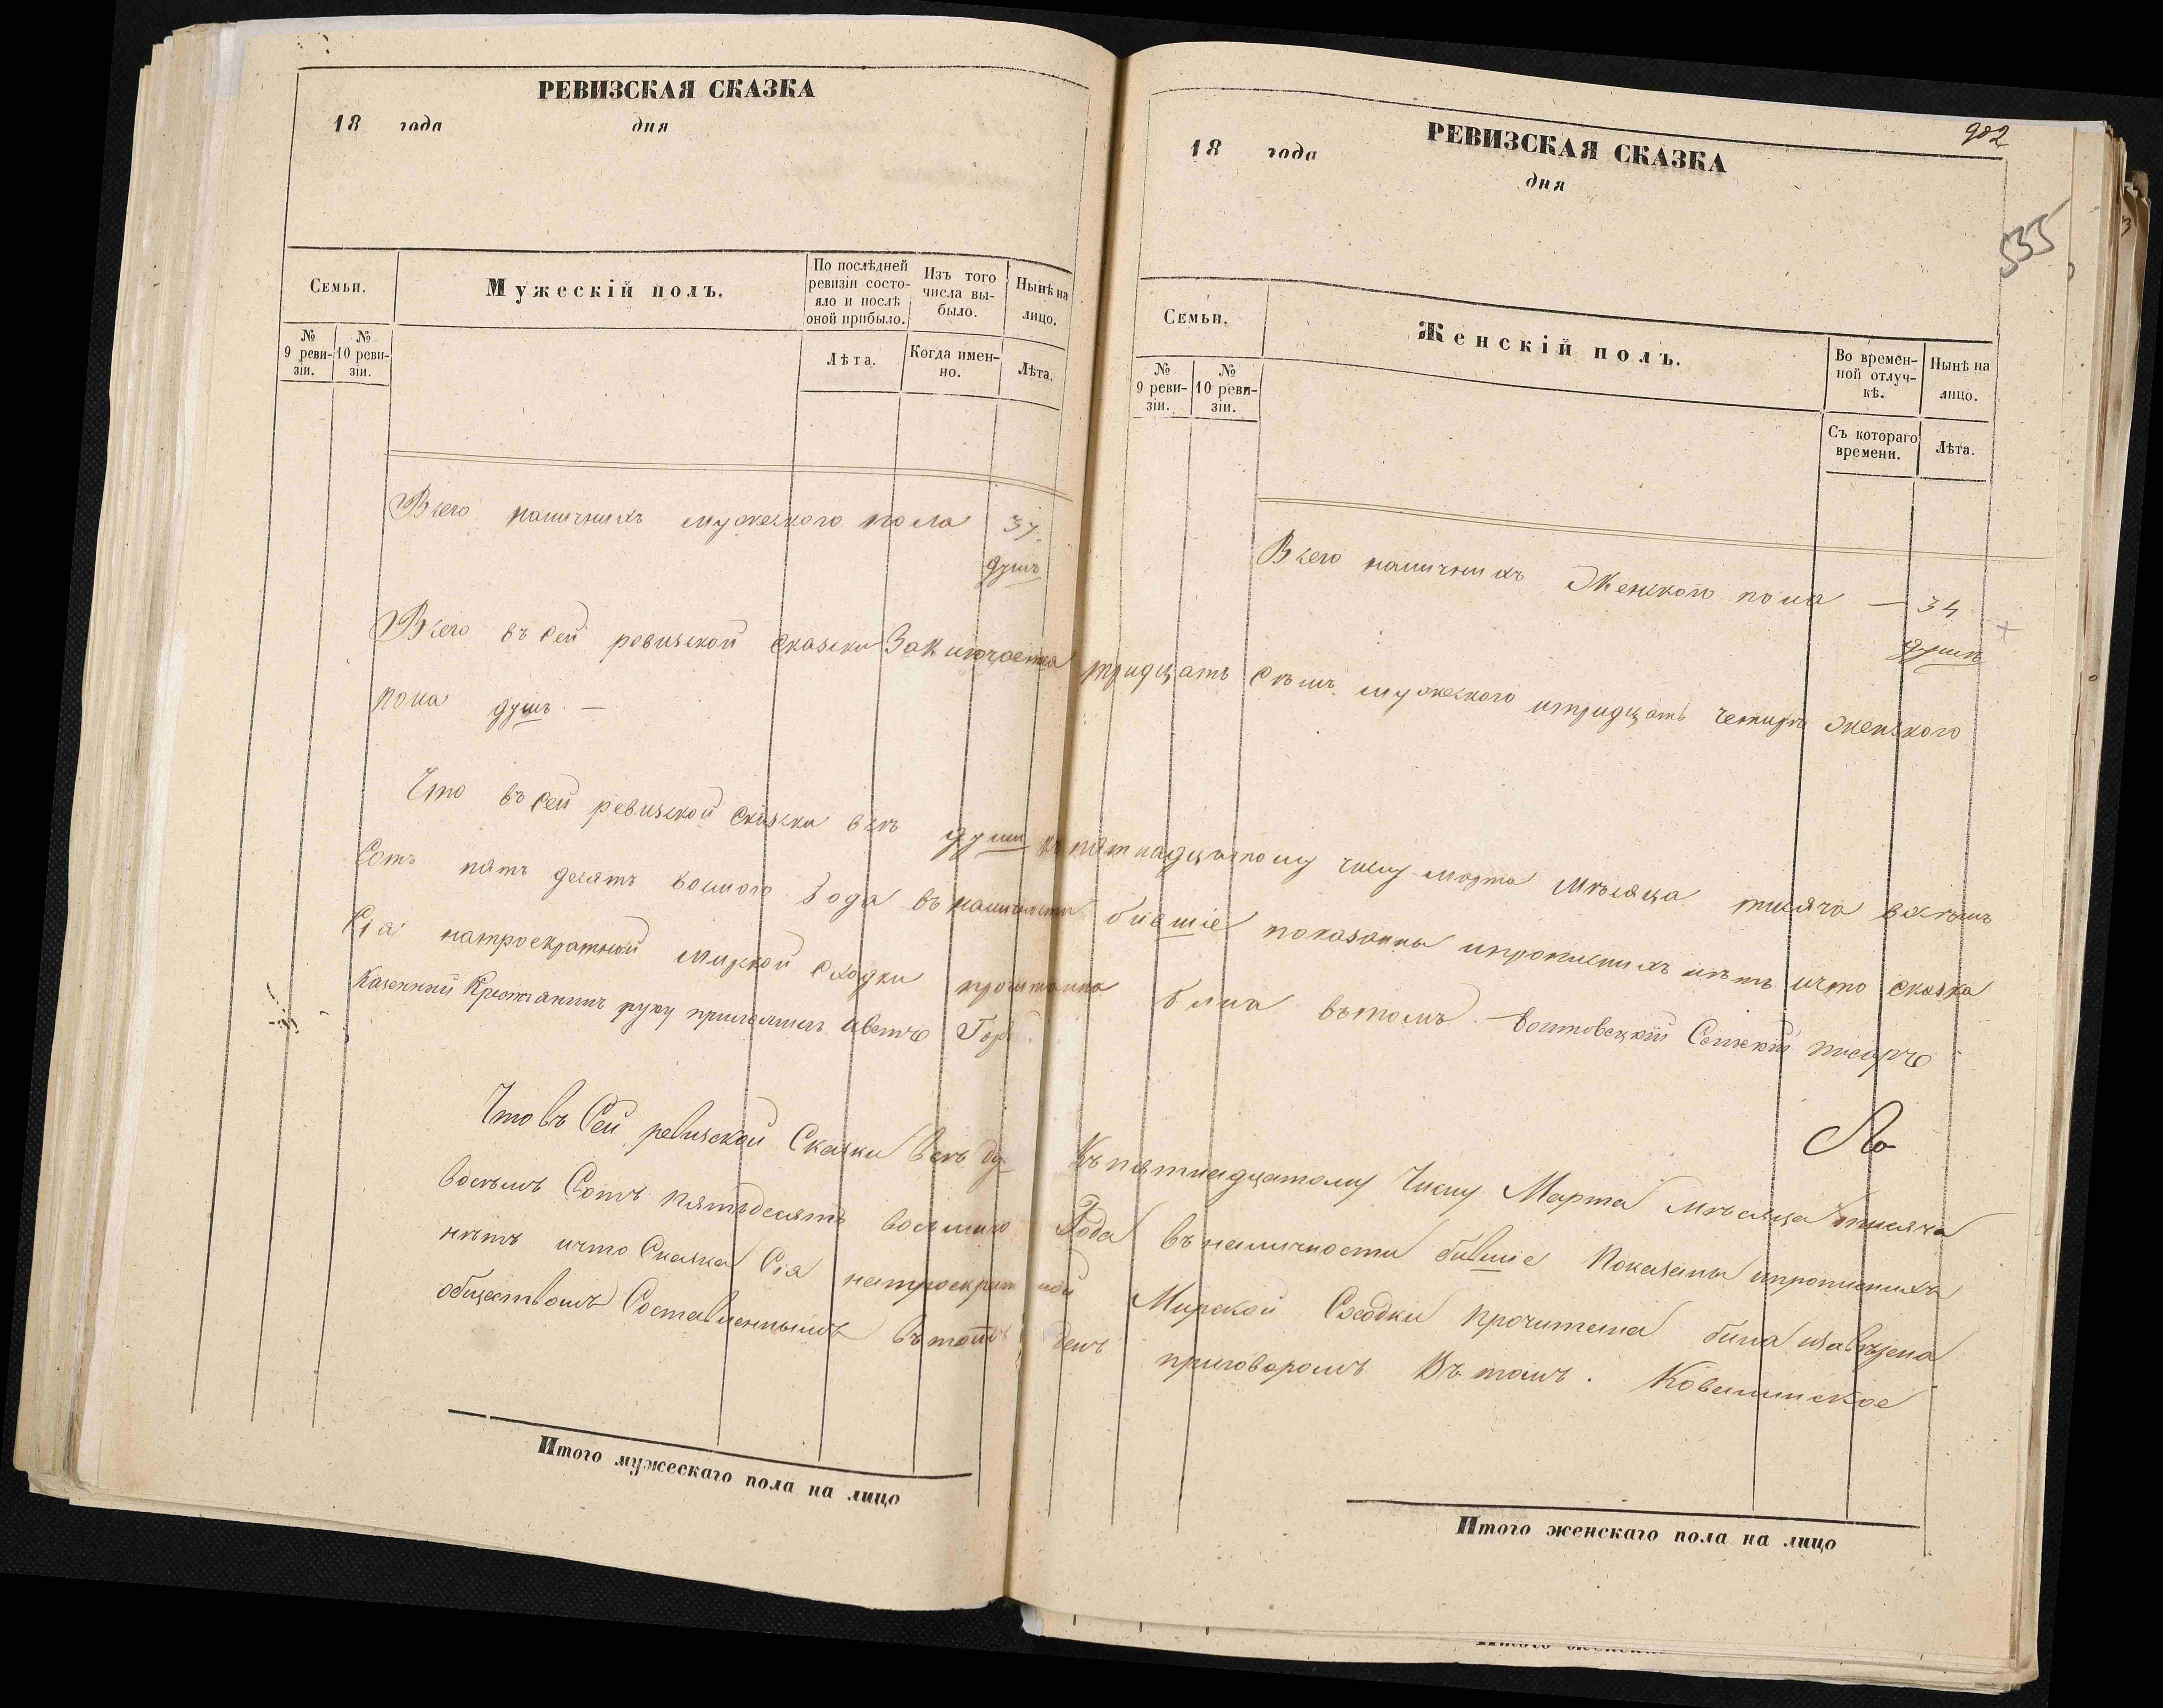 РЕВИЗСКАЯ СКАЗКА
18 года дня
Семьи.
Мужескій полъ.
По послѣдней ревизіи состояло и послѣ оной прибыло.
Изъ того числа выбыло.
Нынѣ на лицо.
№ 9 ревизіи.
№ 10 ревизіи.
Лѣта.
Когда именно.
Лѣта.
Всего наличнихъ мужеского пола 37
душъ
Всего въ сей ревизской сказки Заключается тридцать сѣмъ мужеского итридцать четирѣ женского
пола душъ —
Что въ сей ревизской сказки всѣ души къ пятнадцатому числу марта мѣсяца тисяча восѣмъ
Сотъ пять десятъ восмого Года въ наличности бившіе показанны ипрописнихъ нѣтъ ичто сказка
Сіа натроекратной мирской сходки прочитанна била вътомъ Волтовецкій Селский писарь
Казенний руку приложилъ
Что въ Сей ревизской Сказки всѣ ду Къ пятнадцатому Числу Марта мѣсяца тисяча
восѣмъ Сотъ пятьдесятъ восьмого Года въ наличности бившіе Показаны ипрописнихъ
нѣтъ ичто Сказка Сія натроекратной Мирской Сходки прочитана била
обществомъ Составленнымъ вътотъ день приговоромъ Въ томъ.
Итого мужескаго пола на лицо
РЕВИЗСКАЯ СКАЗКА
902
18 года дня
535
Семьи.
Женскій полъ.
Во временной отлучкѣ.
Нынѣ на лицо.
№ 9 ревизіи.
№ 10 ревизіи.
Съ котораго времени.
Лѣта.
Всего наличнихъ Женского пола — 34
душъ
Итого женскаго пола на лицо